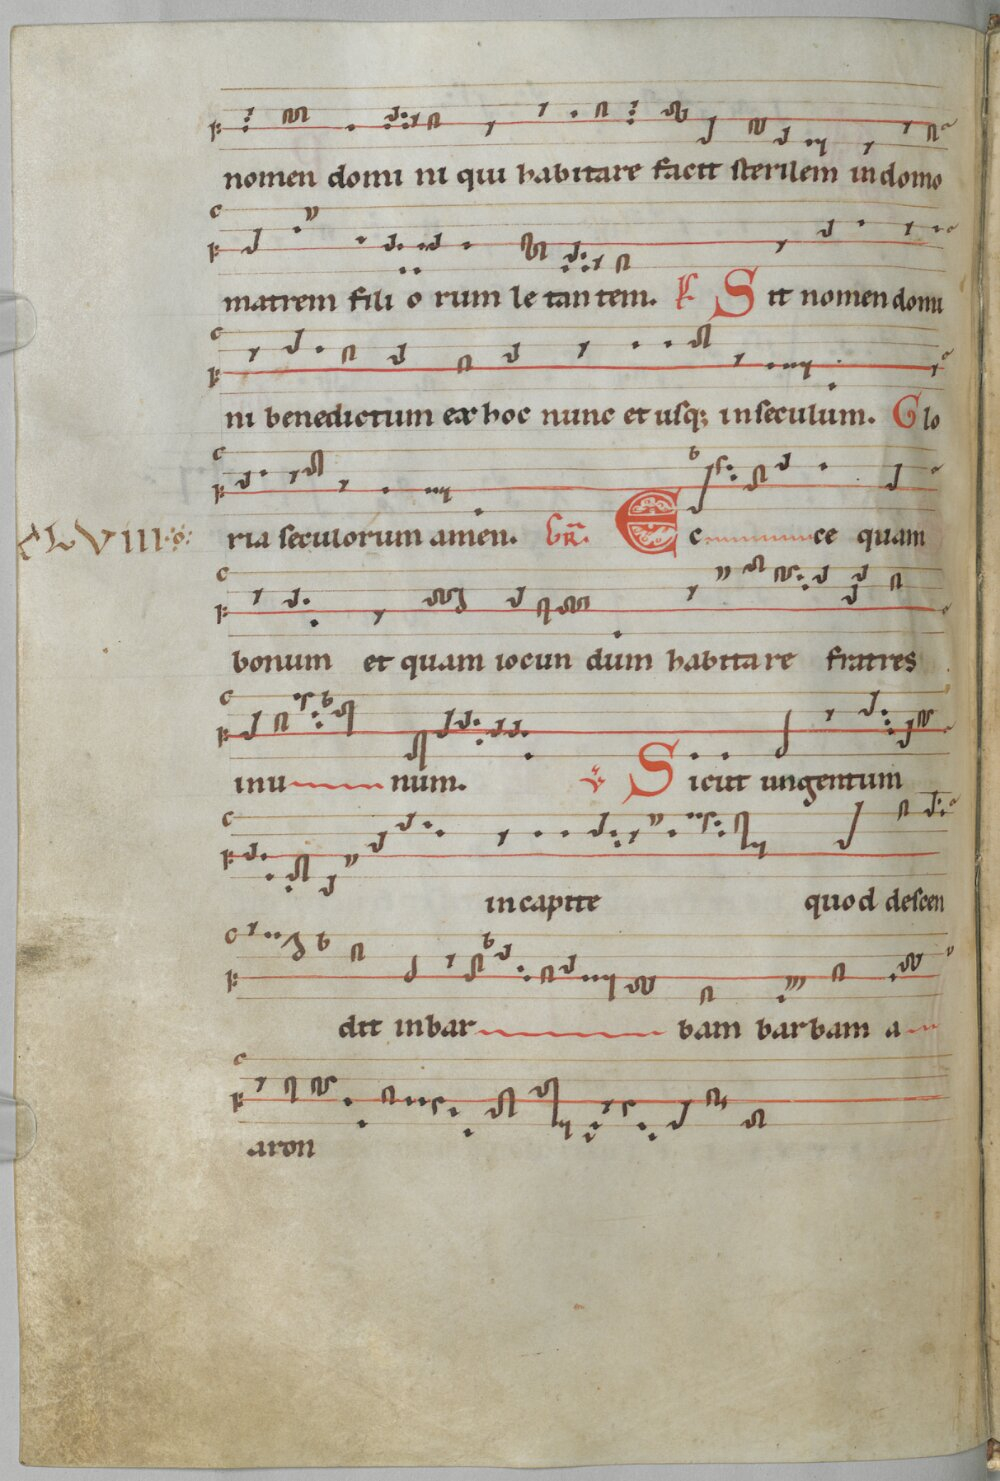 nomen domi ni qui habitare facit sterilem in domo
matrem fili o rum le tan tem. Sit nomen domi
ni benedictum ex hoc nunc et usq; in seculum. Glo
CLVIII ria seculorum amen. GR. Ec ce quam
bonum et quam iocun dum habitare fratres
inu num. V Sicut ungentum
in capite quod descen
dit in bar bam barbam a
aron